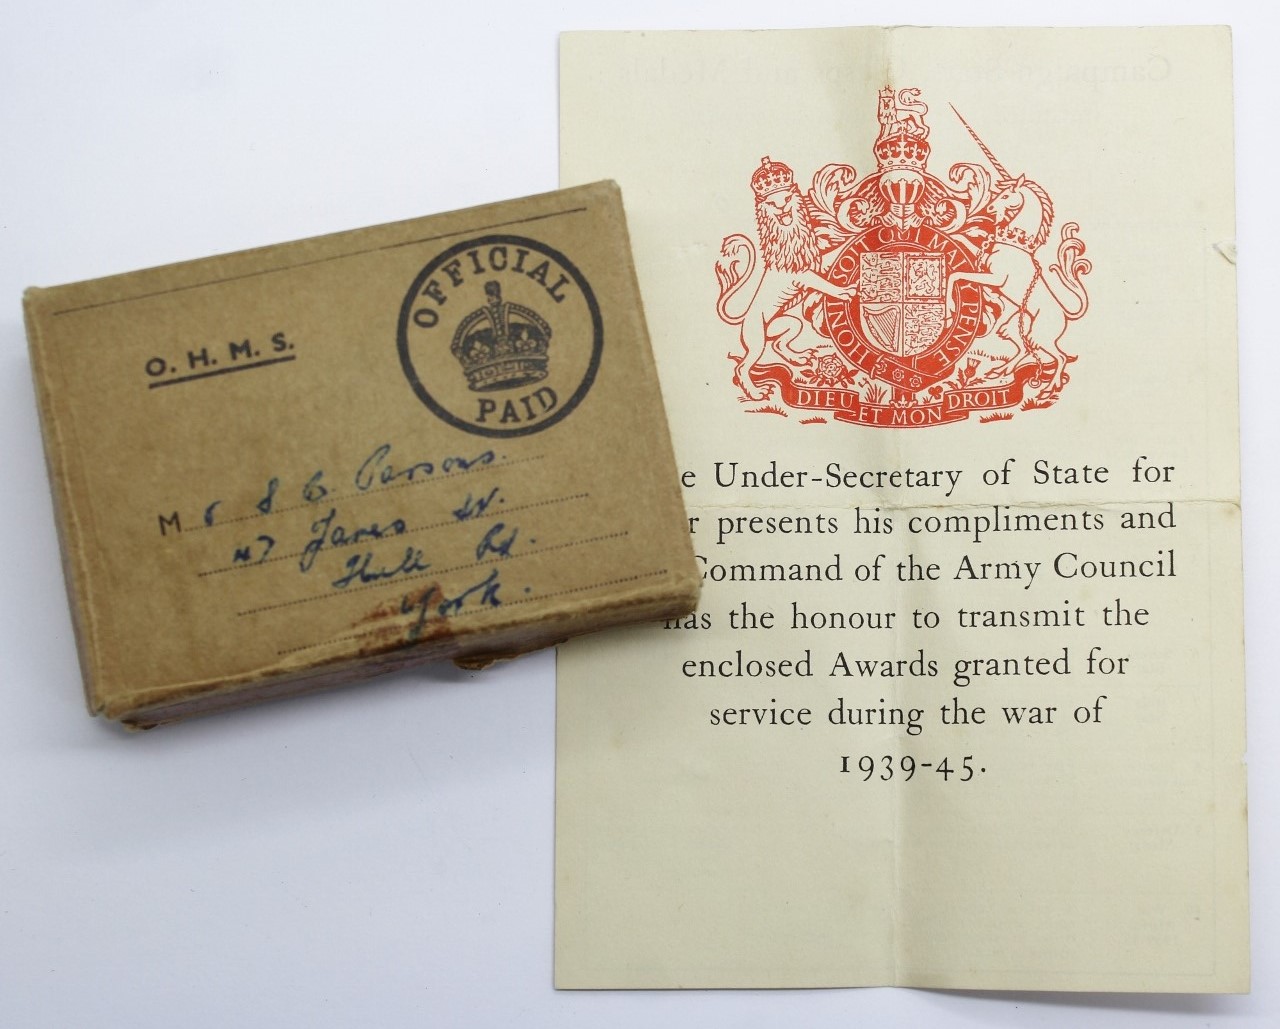 O. H. M. S.
OFFICIAL
PAID
Mr S C Parsons.
47 James St.
Hull Rd.
York.
HONI SOIT QUI MAL Y PENSE
DIEU ET MON DROIT
e Under-Secretary of State for
r presents his compliments and
Command of the Army Council
has the honour to transmit the
enclosed Awards granted for
service during the war of
1939-45.